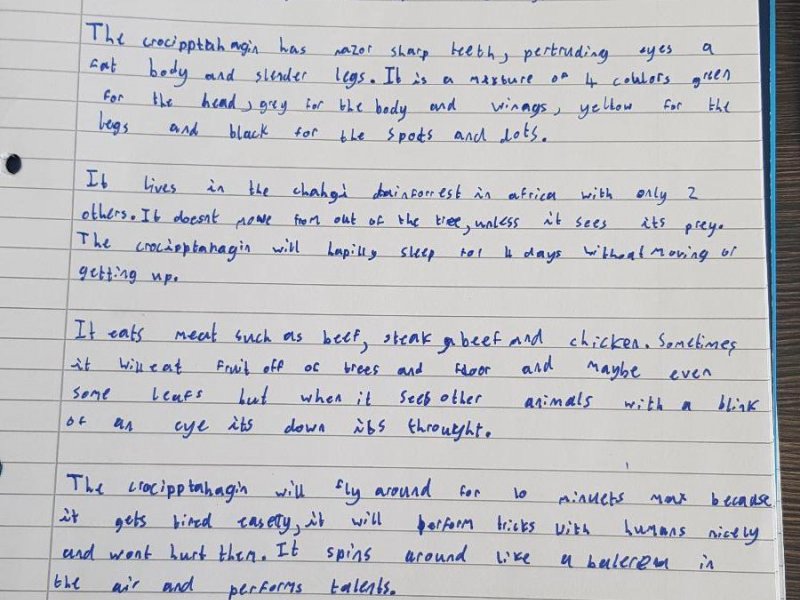 The crocipptahagin has razor sharp teeth, pertruding eyes a
fat body and slender legs. It is a mixture of 4 coulors green
for the head, grey for the body and winags, yellow for the
legs and black for the spots and dots.
It lives in the chahgi rainforrest in africa with only 2
others. It doesnt move from out of the tree, unless it sees its prey.
The crocipptahagin will hapilly sleep for 4 days without moving or
getting up.
It eats meat such as beef, steak beef and chicken. Sometimes
it will eat fruit off of trees and floor and maybe even
some leafs but when it sees other animals with a blink
of an eye its down its throught.
The crocipptahagin will fly around for 10 minuets max because
it gets tired easely, it will perform tricks with humans nicely
and wont hurt them. It spins around like a balerena in
the air and performs talents.